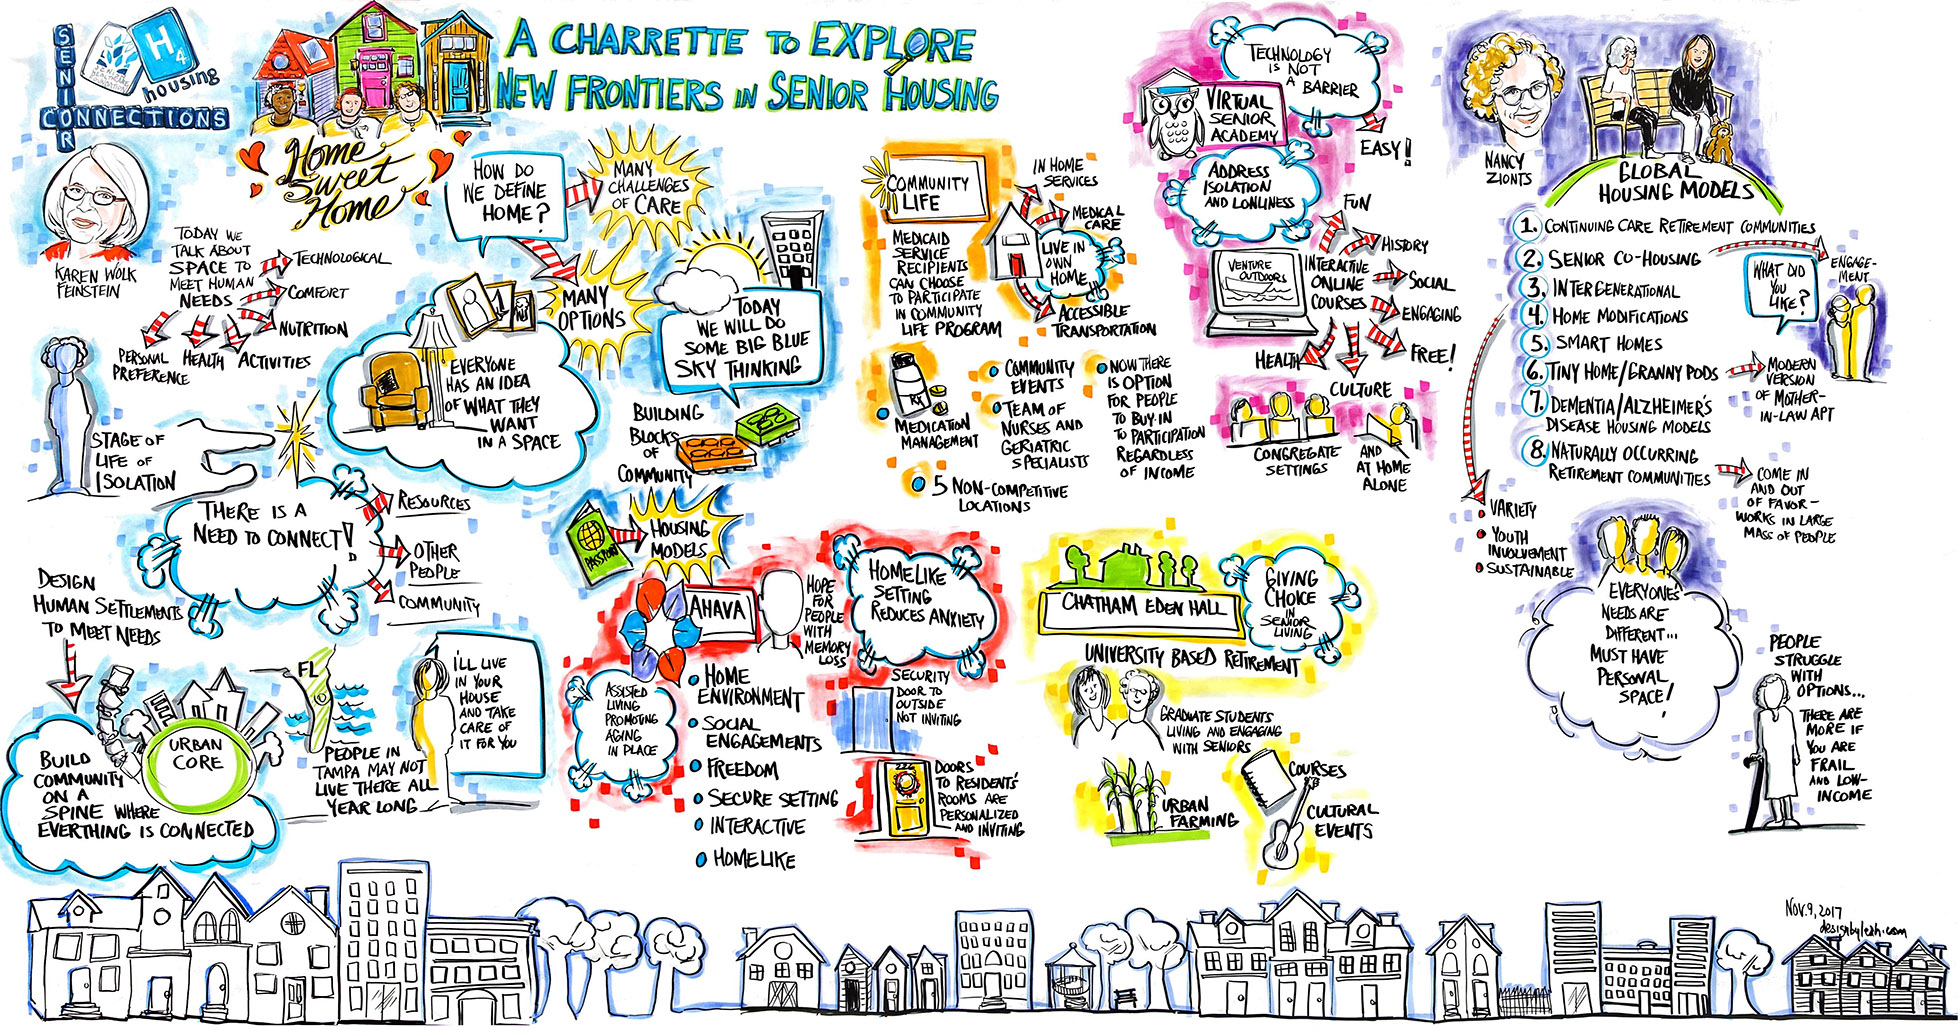 SENIOR
CONNECTIONS
H
4
housing
A CHARRETTE TO EXPLORE
NEW FRONTIERS IN SENIOR HOUSING
Home
Sweet
Home
KAREN WOLK
FEINSTEIN
TODAY WE
TALK ABOUT
SPACE TO
MEET HUMAN
NEEDS
TECHNOLOGICAL
COMFORT
NUTRITION
ACTIVITIES
HEALTH
PERSONAL
PREFERENCE
HOW DO
WE DEFINE
HOME?
MANY
CHALLENGES
OF CARE
MANY
OPTIONS
EVERYONE
HAS AN IDEA
OF WHAT THEY
WANT
IN A SPACE
TODAY
WE WILL DO
SOME BIG BLUE
SKY THINKING
BUILDING
BLOCKS
OF
COMMUNITY
STAGE OF
LIFE OF
ISOLATION
THERE IS A
NEED TO CONNECT!
RESOURCES
OTHER
PEOPLE
COMMUNITY
DESIGN
HUMAN SETTLEMENTS
TO MEET NEEDS
BUILD
COMMUNITY
ON A
SPINE WHERE
EVERTHING IS CONNECTED
URBAN
CORE
FL
PEOPLE IN
TAMPA MAY NOT
LIVE THERE ALL
YEAR LONG
I'LL LIVE
IN YOUR
HOUSE
AND TAKE
CARE OF
IT FOR YOU
PASSPORT
HOUSING
MODELS
AHAVA
HOPE
FOR
PEOPLE
WITH
MEMORY
LOSS
HOMELIKE
SETTING
REDUCES ANXIETY
ASSISTED
LIVING
PROMOTING
AGING
IN PLACE
HOME
ENVIRONMENT
SOCIAL
ENGAGEMENTS
FREEDOM
SECURE SETTING
INTERACTIVE
HOMELIKE
SECURITY
DOOR TO
OUTSIDE
NOT INVITING
226
DOORS
TO RESIDENTS'
ROOMS ARE
PERSONALIZED
AND INVITING
COMMUNITY
LIFE
MEDICAID
SERVICE
RECIPIENTS
CAN CHOOSE
TO PARTICIPATE
IN COMMUNITY
LIFE PROGRAM
IN HOME
SERVICES
MEDICAL
CARE
LIVE IN
OWN
HOME
ACCESSIBLE
TRANSPORTATION
RX
MEDICATION
MANAGEMENT
COMMUNITY
EVENTS
TEAM OF
NURSES AND
GERIATRIC
SPECIALISTS
NOW THERE
IS OPTION
FOR PEOPLE
TO BUY-IN
TO PARTICIPATION
REGARDLESS
OF INCOME
5 NON-COMPETITIVE
LOCATIONS
CHATHAM EDEN HALL
GIVING
CHOICE
IN
SENIOR
LIVING
UNIVERSITY BASED RETIREMENT
GRADUATE STUDENTS
LIVING AND ENGAGING
WITH SENIORS
URBAN
FARMING
COURSES
CULTURAL
EVENTS
TECHNOLOGY
IS NOT
A
BARRIER
EASY!
VIRTUAL
SENIOR
ACADEMY
ADDRESS
ISOLATION
AND LONLINESS
VENTURE
OUTDOORS
INTERACTIVE
ONLINE
COURSES
FUN
HISTORY
SOCIAL
ENGAGING
FREE!
CULTURE
HEALTH
CONGREGATE
SETTINGS
AND
AT HOME
ALONE
NANCY
ZIONTS
GLOBAL
HOUSING MODELS
1. CONTINUING CARE RETIREMENT COMMUNITIES
2. SENIOR CO-HOUSING
3. INTERGENERATIONAL
4. HOME MODIFICATIONS
5. SMART HOMES
6. TINY HOME/GRANNY PODS
7. DEMENTIA/ALZHEIMER'S
DISEASE HOUSING MODELS
8. NATURALLY OCCURRING
RETIREMENT COMMUNITIES
ENGAGE-
MENT
WHAT DID
YOU
LIKE?
MODERN
VERSION
OF MOTHER-
IN-LAW APT
COME IN
AND OUT
OF FAVOR-
WORKS IN LARGE
MASS OF PEOPLE
VARIETY
YOUTH
INVOLVEMENT
SUSTAINABLE
EVERYONE'S
NEEDS ARE
DIFFERENT...
MUST HAVE
PERSONAL
SPACE!
PEOPLE
STRUGGLE
WITH
OPTIONS...
THERE ARE
MORE IF
YOU ARE
FRAIL
AND LOW-
INCOME
NOV. 9, 2017
designbyleah.com